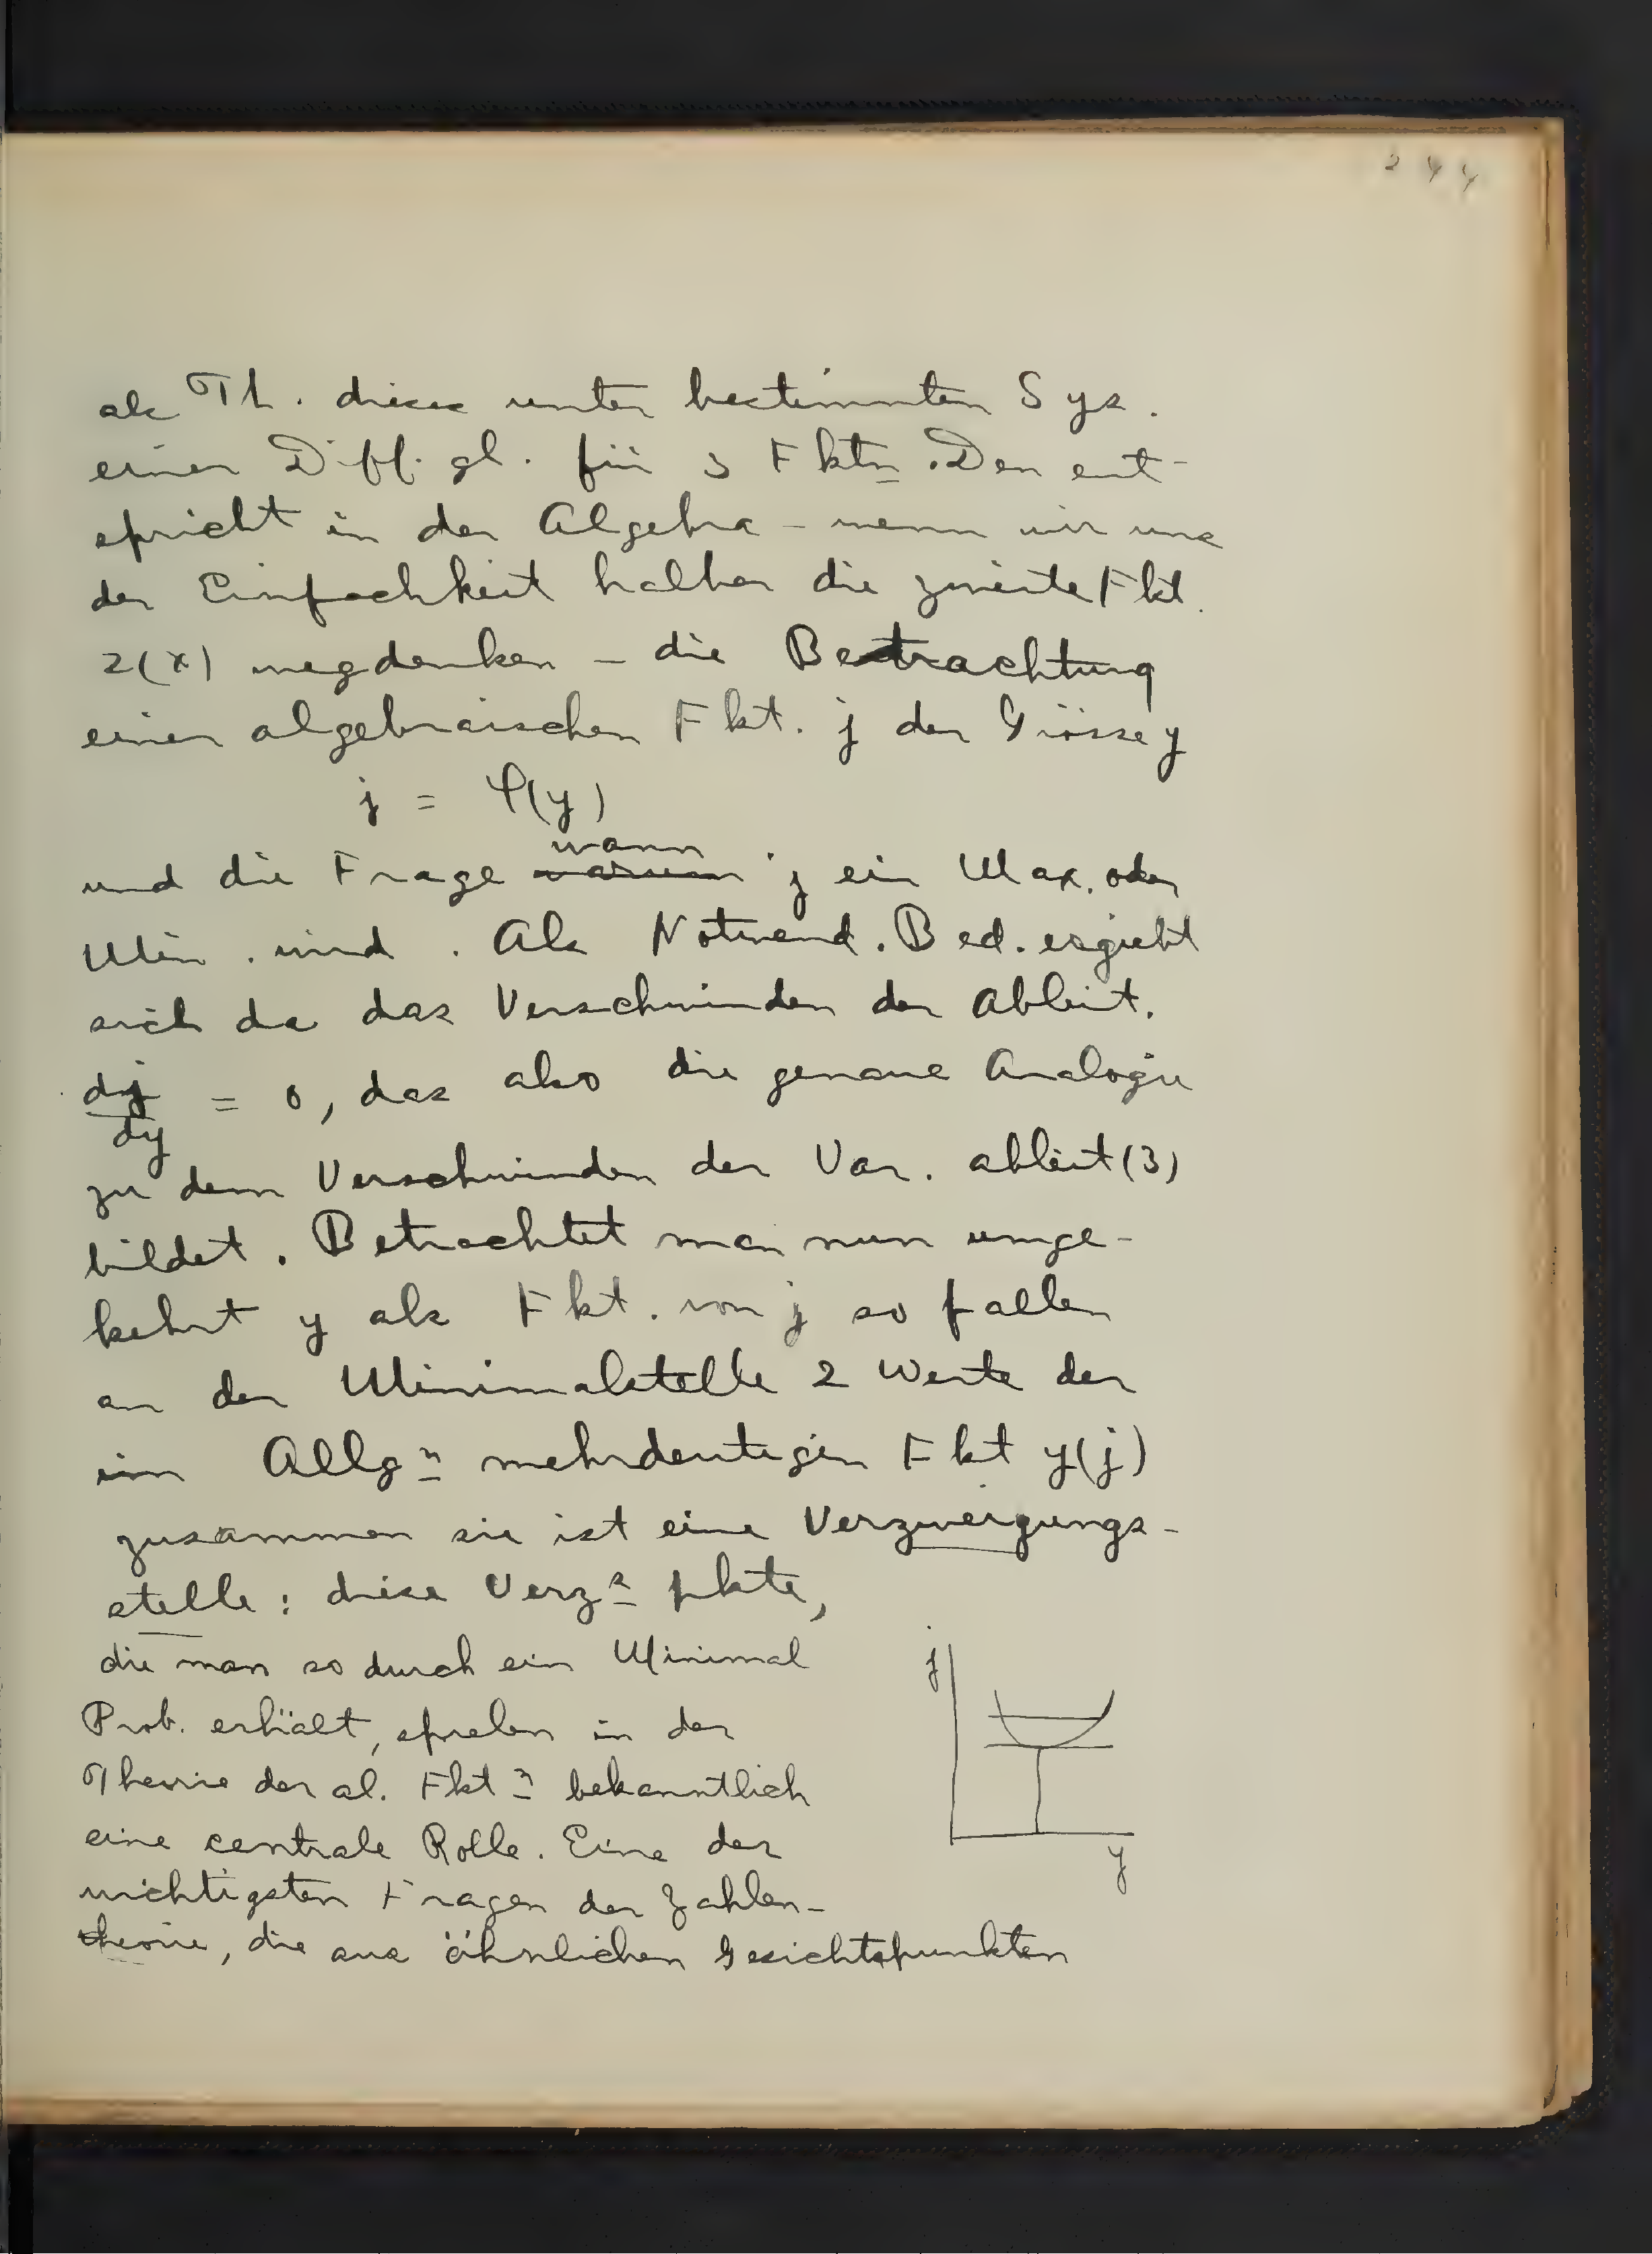 244
als Th. dieses unter bestimmten Sys.
einer Diff. gl. für 3 Fktn. Dem ent-
spricht in der Algebra – wenn wir uns
der Einfachkeit halber die zweite Fkt.
z(x) wegdenken – die Betrachtung
einer algebraischen Fkt. j der Grösse y
j = φ(y)
wann
und die Frage warum j ein Max. oder
Min. wird. Als Notwend. Bed. ergiebt
sich da das Verschwinden der Ableit.
dj/dy = 0, das also die genaue Analogie
zu dem Verschwinden der Var. ableit (3)
bildet. Betrachtet man nun umge-
kehrt y als Fkt. von j so fallen
an der Minimalstelle 2 Werte der
im Allgn mehrdeutigen Fkt y(j)
zusammen sie ist eine Verzweigungs-
stelle: diese Verzs pkte,
die man so durch ein Minimal
Prob. erhält, spielen in der
Theorie der al. Fktn bekanntlich
eine centrale Rolle. Eine der
wichtigsten Fragen der Zahlen-
theorie, die aus ähnlichen Gesichtspunkten
j
y